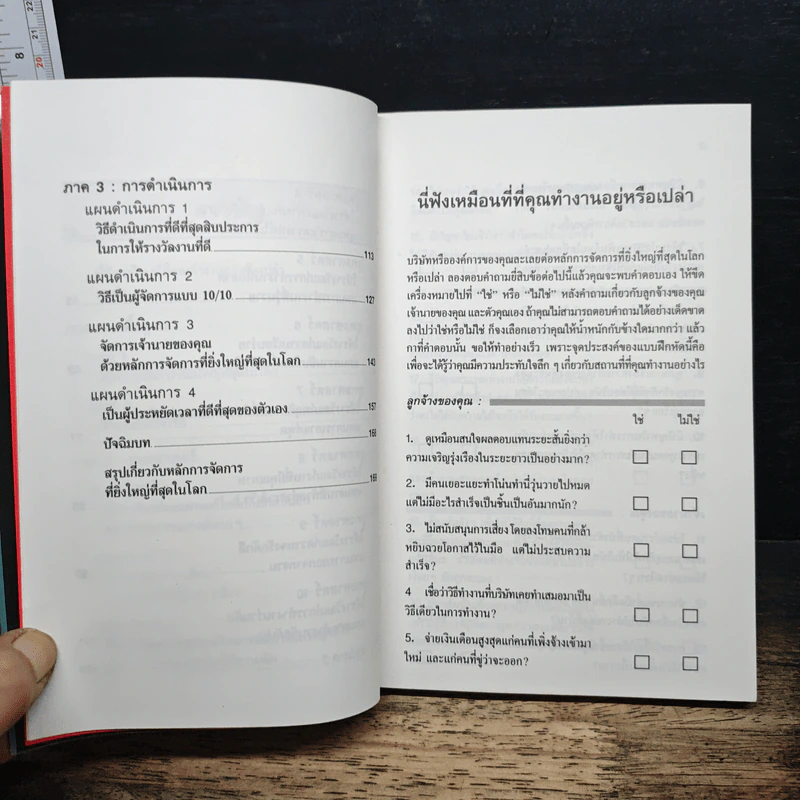 8
22
21
20
ภาค 3 : การดำเนินการ
แผนดำเนินการ 1
วิธีดำเนินการที่ดีที่สุดสิบประการ
ในการให้รางวัลงานที่ดี 113
แผนดำเนินการ 2
วิธีเป็นผู้จัดการแบบ 10/10 127
แผนดำเนินการ 3
จัดการเจ้านายของคุณ
ด้วยหลักการจัดการที่ยิ่งใหญ่ที่สุดในโลก 143
แผนดำเนินการ 4
เป็นผู้ประหยัดเวลาที่ดีที่สุดของตัวเอง 157
ปัจฉิมบท 166
สรุปเกี่ยวกับหลักการจัดการ
ที่ยิ่งใหญ่ที่สุดในโลก
นี่ฟังเหมือนที่ที่คุณทำงานอยู่หรือเปล่า
บริษัทหรือองค์การของคุณละเลยต่อหลักการจัดการที่ยิ่งใหญ่ที่สุดในโลก
หรือเปล่า ลองตอบคำถามยี่สิบข้อต่อไปนี้แล้วคุณจะพบคำตอบเอง ให้ขีด
เครื่องหมายไปที่ “ใช่” หรือ “ไม่ใช่” หลังคำถามเกี่ยวกับลูกจ้างของคุณ
เจ้านายของคุณ และตัวคุณเอง ถ้าคุณไม่สามารถตอบคำถามได้อย่างเด็ดขาด
ลงไปว่าใช่หรือไม่ใช่ ก็จงเลือกเอาว่าคุณให้น้ำหนักกับข้างใดมากกว่า แล้ว
กาที่คำตอบนั้น ขอให้ทำอย่างเร็ว เพราะจุดประสงค์ของแบบฝึกหัดนี้คือ
เพื่อจะได้รู้ว่าคุณมีความประทับใจลึก ๆ เกี่ยวกับสถานที่ที่คุณทำงานอย่างไร
ลูกจ้างของคุณ :
ใช่ ไม่ใช่
1. ดูเหมือนสนใจผลตอบแทนระยะสั้นยิ่งกว่า
ความเจริญรุ่งเรืองในระยะยาวเป็นอย่างมาก?
2. มีคนเยอะแยะทำโน่นทำนี่วุ่นวายไปหมด
แต่ไม่มีอะไรสำเร็จเป็นชิ้นเป็นอันมากนัก?
3. ไม่สนับสนุนการเสี่ยง โดยลงโทษคนที่กล้า
หยิบฉวยโอกาสไว้ในมือ แต่ไม่ประสบความ
สำเร็จ?
4 เชื่อว่าวิธีทำงานที่บริษัทเคยทำเสมอมาเป็น
วิธีเดียวในการทำงาน?
5. จ่ายเงินเดือนสูงสุดแก่คนที่เพิ่งจ้างเข้ามา
ใหม่ และแก่คนที่ขู่ว่าจะออก?